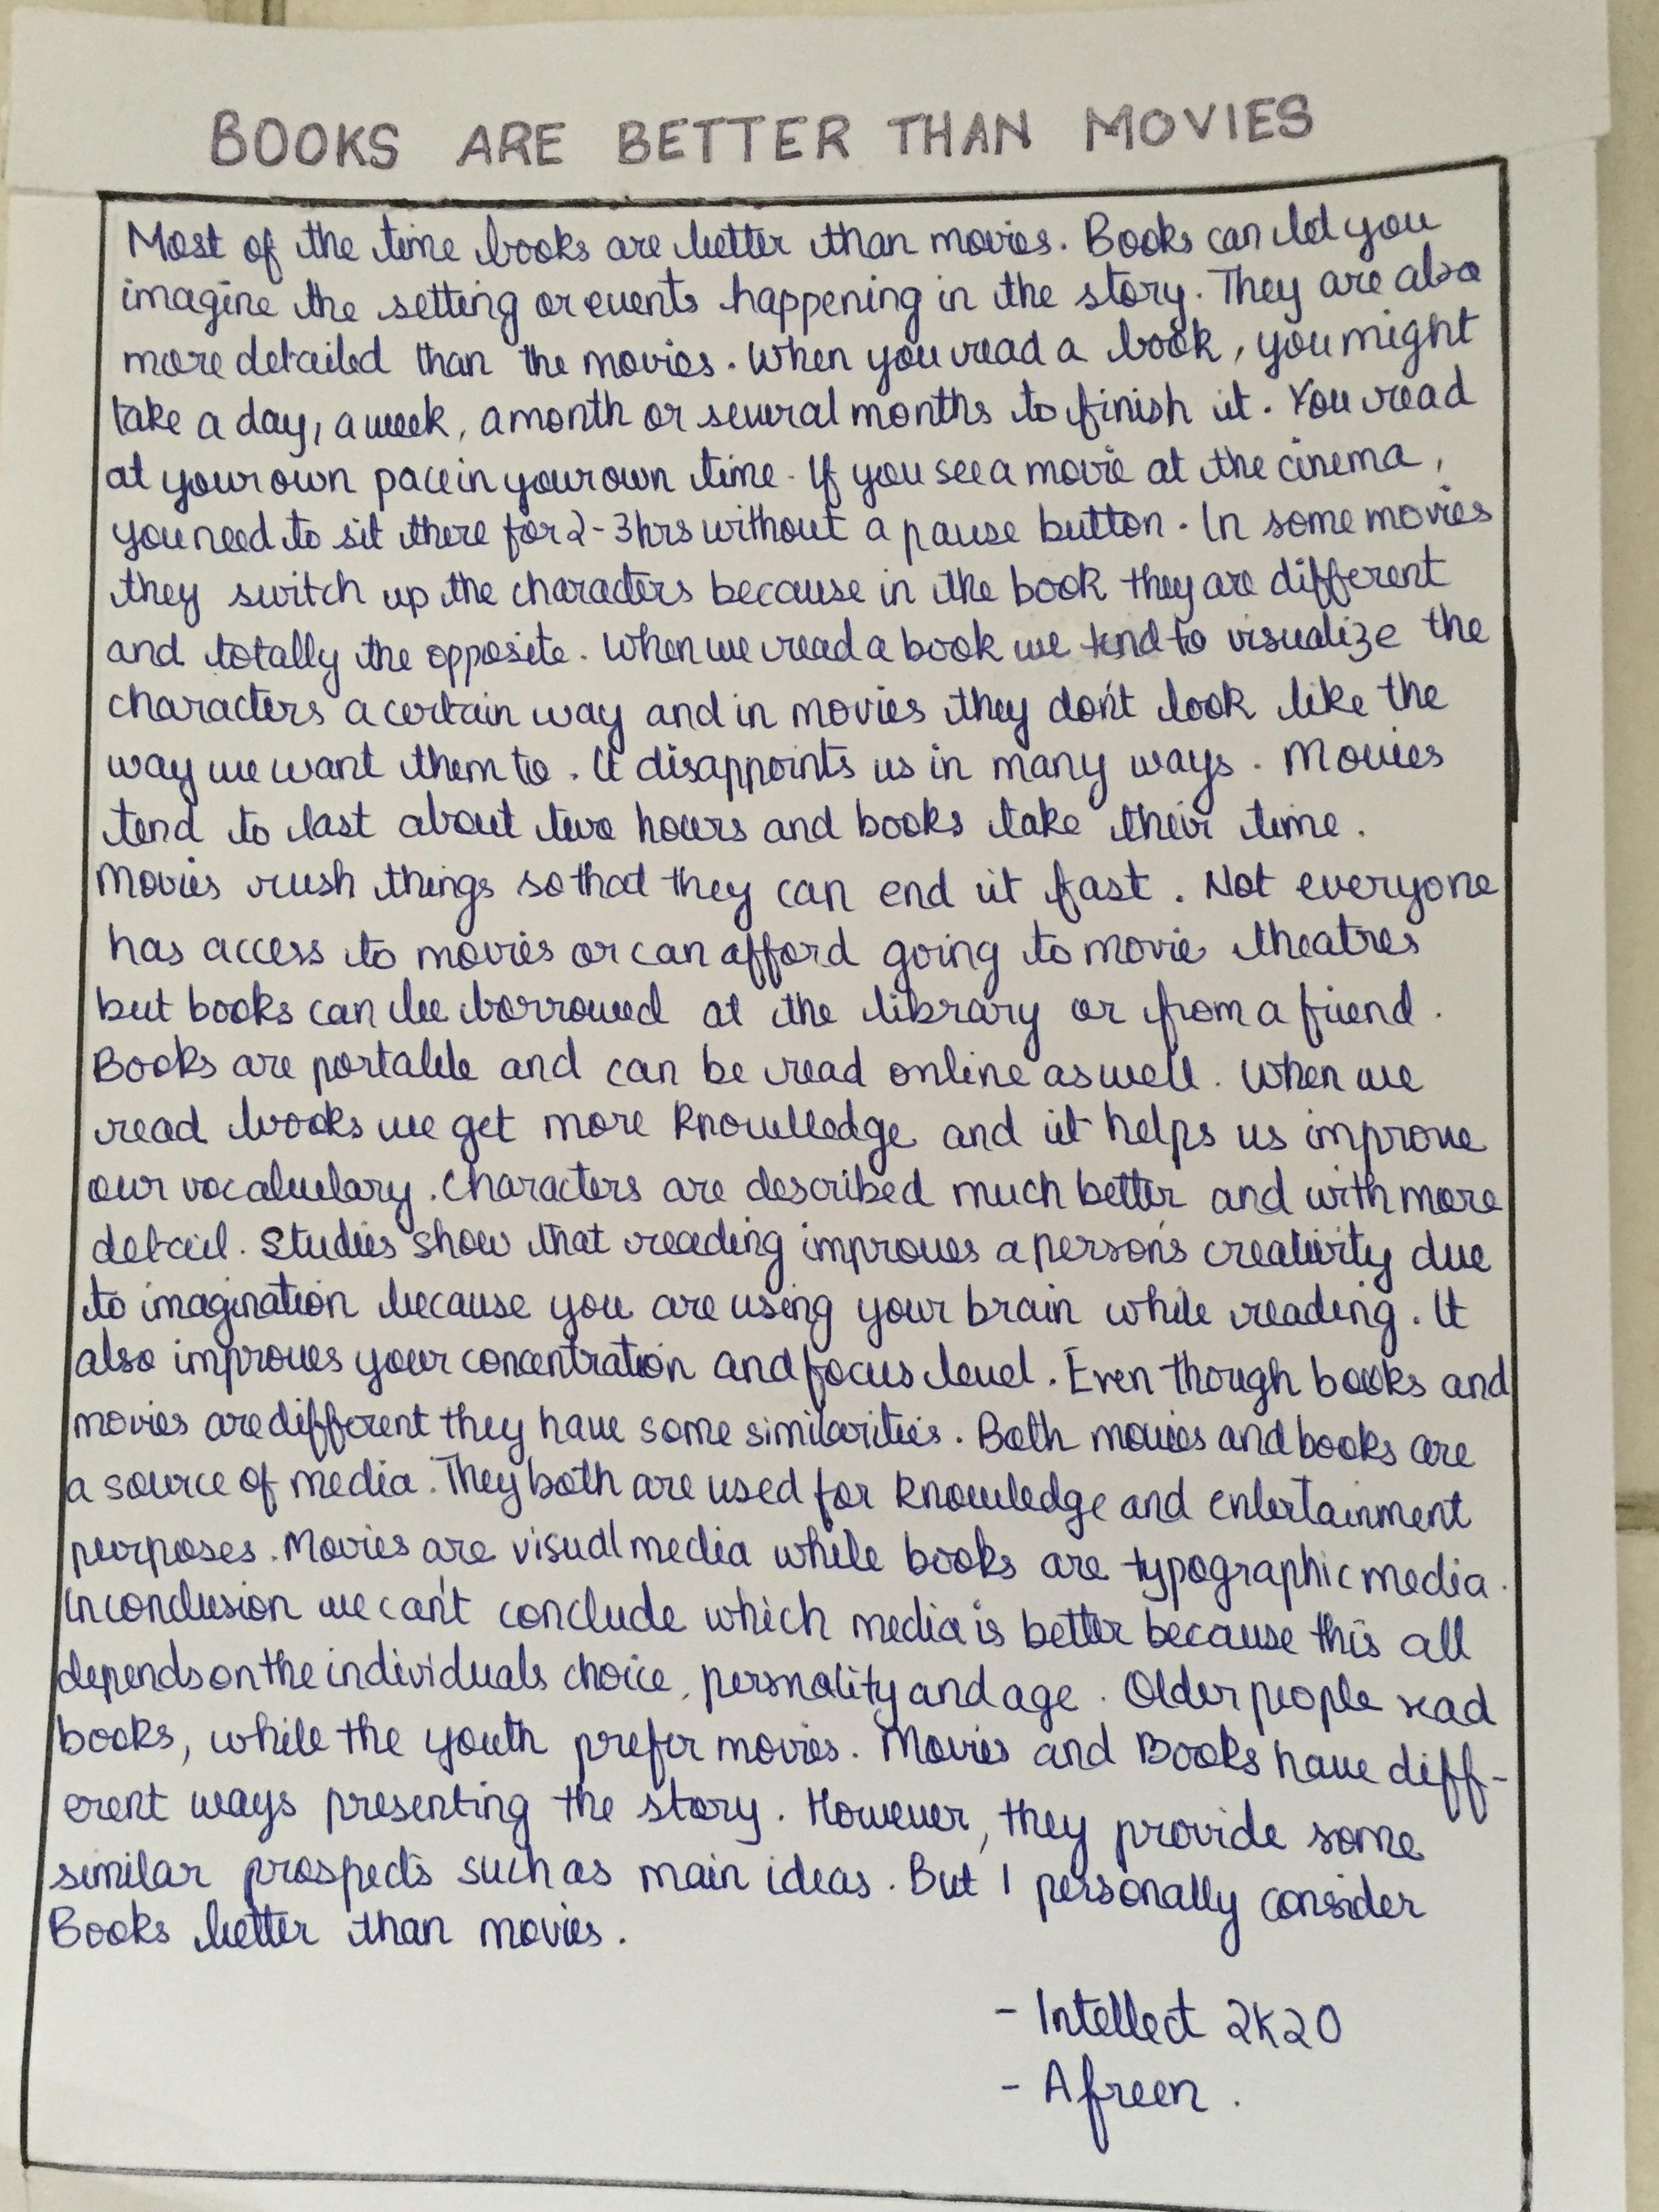 BOOKS ARE BETTER THAN MOVIES
Most of the time books are better than movies. Books can let you
imagine the setting or events happening in the story. They are also
more detailed than the movies. When you read a book, you might
take a day, a week, a month or several months to finish it. You read
at your own pace in your own time. If you see a movie at the cinema,
you need to sit there for 2-3hrs without a pause button. In some movies
they switch up the characters because in the book they are different
and totally the opposite. When we read a book we tend to visualize the
characters a certain way and in movies they don't look like the
way we want them to. It disappoints us in many ways. Movies
tend to last about two hours and books take their time.
Movies rush things so that they can end it fast. Not everyone
has access to movies or can afford going to movie theatres
but books can be borrowed at the library or from a friend.
Books are portable and can be read online as well. When we
read books we get more knowlledge and it helps us improve
our vocabulary. Characters are described much better and with more
detail. Studies show that reading improves a person's creativity due
to imagination because you are using your brain while reading. It
also improves your concentration and focus level. Even though books and
movies are different they have some similarities. Both movies and books are
a source of media. They both are used for knowledge and entertainment
purposes. Movies are visual media while books are typographic media.
In conclusion we can't conclude which media is better because this all
depends on the individuals choice, persnality and age. Older people read
books, while the youth prefer movies. Movies and Books have diff-
erent ways presenting the story. However, they provide some
similar prospects such as main ideas. But I personally consider
Books better than movies.
- Intellect 2K20
- Afreen.